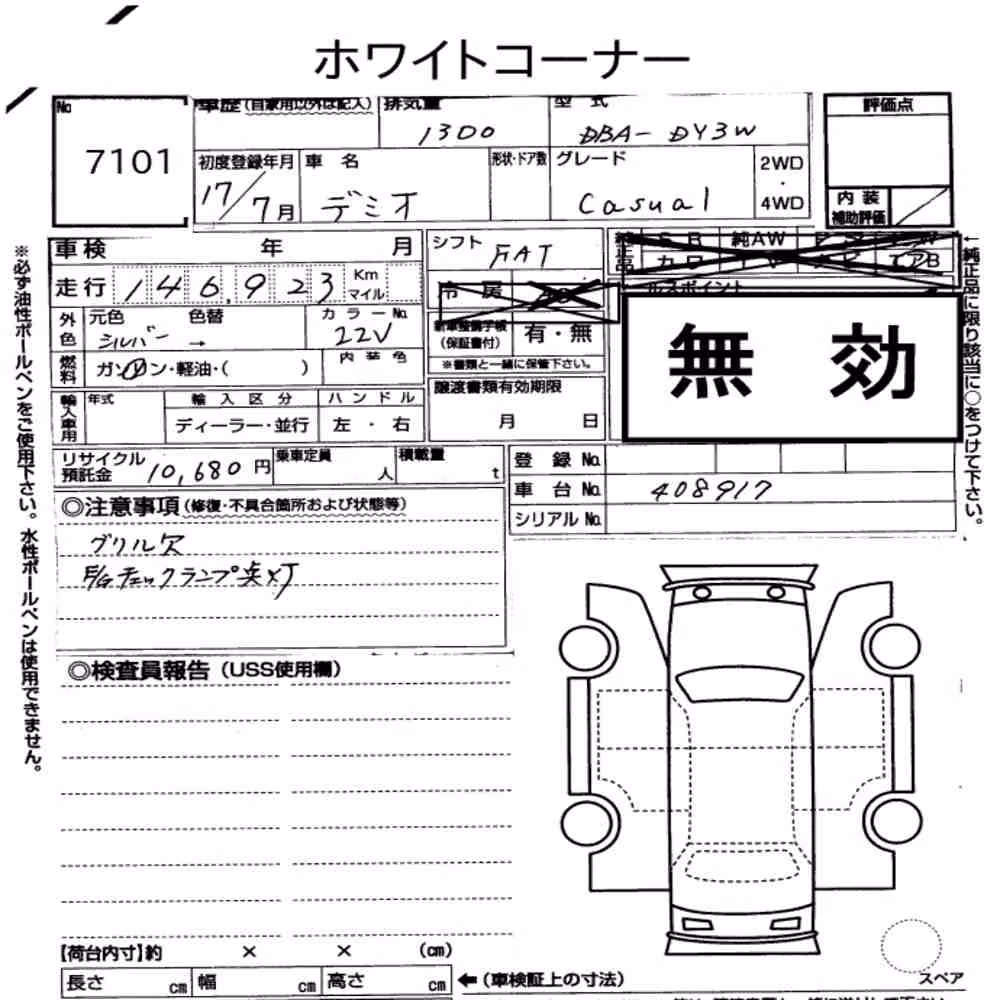 ホワイトコーナー
No
7101
車歴(自家用以外は記入)
排気量
1300
型式
DBA-DY3W
評価点
初度登録年月
17/7月
車名
デミオ
形状・ドア数
グレード
Casual
2WD
・
4WD
内装
補助評価
車検 年 月
シフト
FAT
純正品
純AW
カワ
エアB
走行 146,923 Km マイル
冷房
AC
セールスポイント
無効
外色
元色 色替
シルバー →
カラーNo.
22V
新車整備手帳
(保証書付)
有・無
※書類と一緒に保管下さい。
燃料
ガソリン・軽油・( )
内装色
譲渡書類有効期限
月 日
輸入車用
年式
輸入区分
ディーラー・並行
ハンドル
左・右
リサイクル
預託金 10,680 円
乗車定員
人
積載量
t
登録No.
車台No. 408917
シリアルNo.
◎注意事項(修復・不具合箇所および状態等)
グリル欠
E/Gチェックランプ点灯
◎検査員報告(USS使用欄)
【荷台内寸】約 × × (cm)
長さ cm 幅 cm 高さ cm
←(車検証上の寸法)
スペア
※必ず油性ボールペンをご使用下さい。水性ボールペンは使用できません。
←純正品に限り該当に○をつけて下さい。